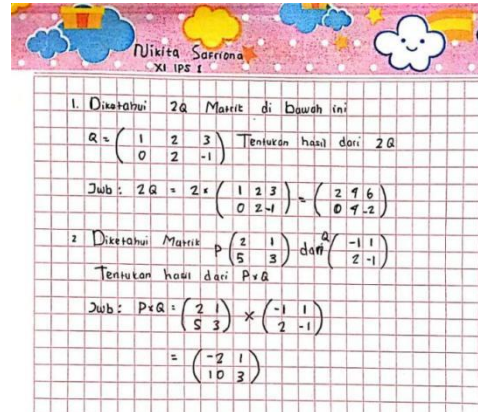 Nikita Safriona
XI IPS 1
1. Diketahui 2Q Matrik di bawah ini
Q = ( 1 2 3 ) Tentukan hasil dari 2Q
0 2 -1
Jwb : 2Q = 2 x ( 1 2 3 ) = ( 2 4 6 )
0 2 -1 0 4 -2
2 Diketahui Matrik P ( 2 1 ) dan Q ( -1 1 )
5 3 2 -1
Tentukan hasil dari P x Q
Jwb : P x Q = ( 2 1 ) × ( -1 1 )
5 3 2 -1
= ( -2 1 )
10 3